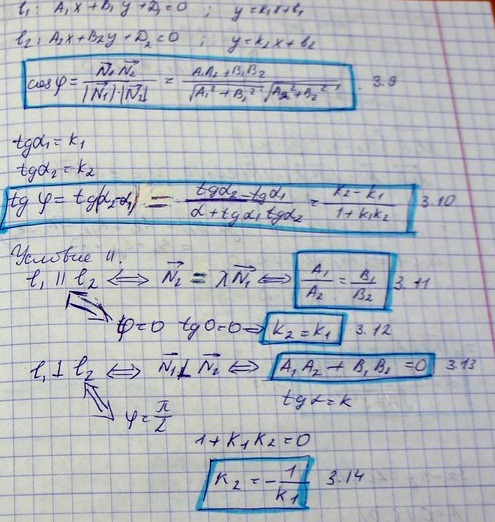 l₁: A₁x + B₁y + D₁ = 0 ; y = k₁x + b₁
l₂: A₂x + B₂y + D₂ = 0 ; y = k₂x + b₂
cos φ = N₁ N₂ / |N₁|·|N₂| = A₁A₂ + B₁B₂ / √A₁² + B₁² √A₂² + B₂² 3.9
tgα₁ = k₁
tgα₂ = k₂
tg φ = tg(α₂-α₁) = tgα₂ - tgα₁ / α + tgα₁ tgα₂ = k₂ - k₁ / 1 + k₁k₂ 3.10
Условие ||.
l₁ || l₂ ⟺ N₂ = λN₁ ⟺ A₁/A₂ = B₁/B₂ 3.11
φ = 0 tg 0 = 0 ⇒ k₂ = k₁ 3.12
l₁ ⊥ l₂ ⟺ N₁ ⊥ N₂ ⟺ A₁A₂ + B₁B₂ = 0 3.13
φ = π/2 tg α = k
1 + k₁k₂ = 0
k₂ = - 1/k₁ 3.14